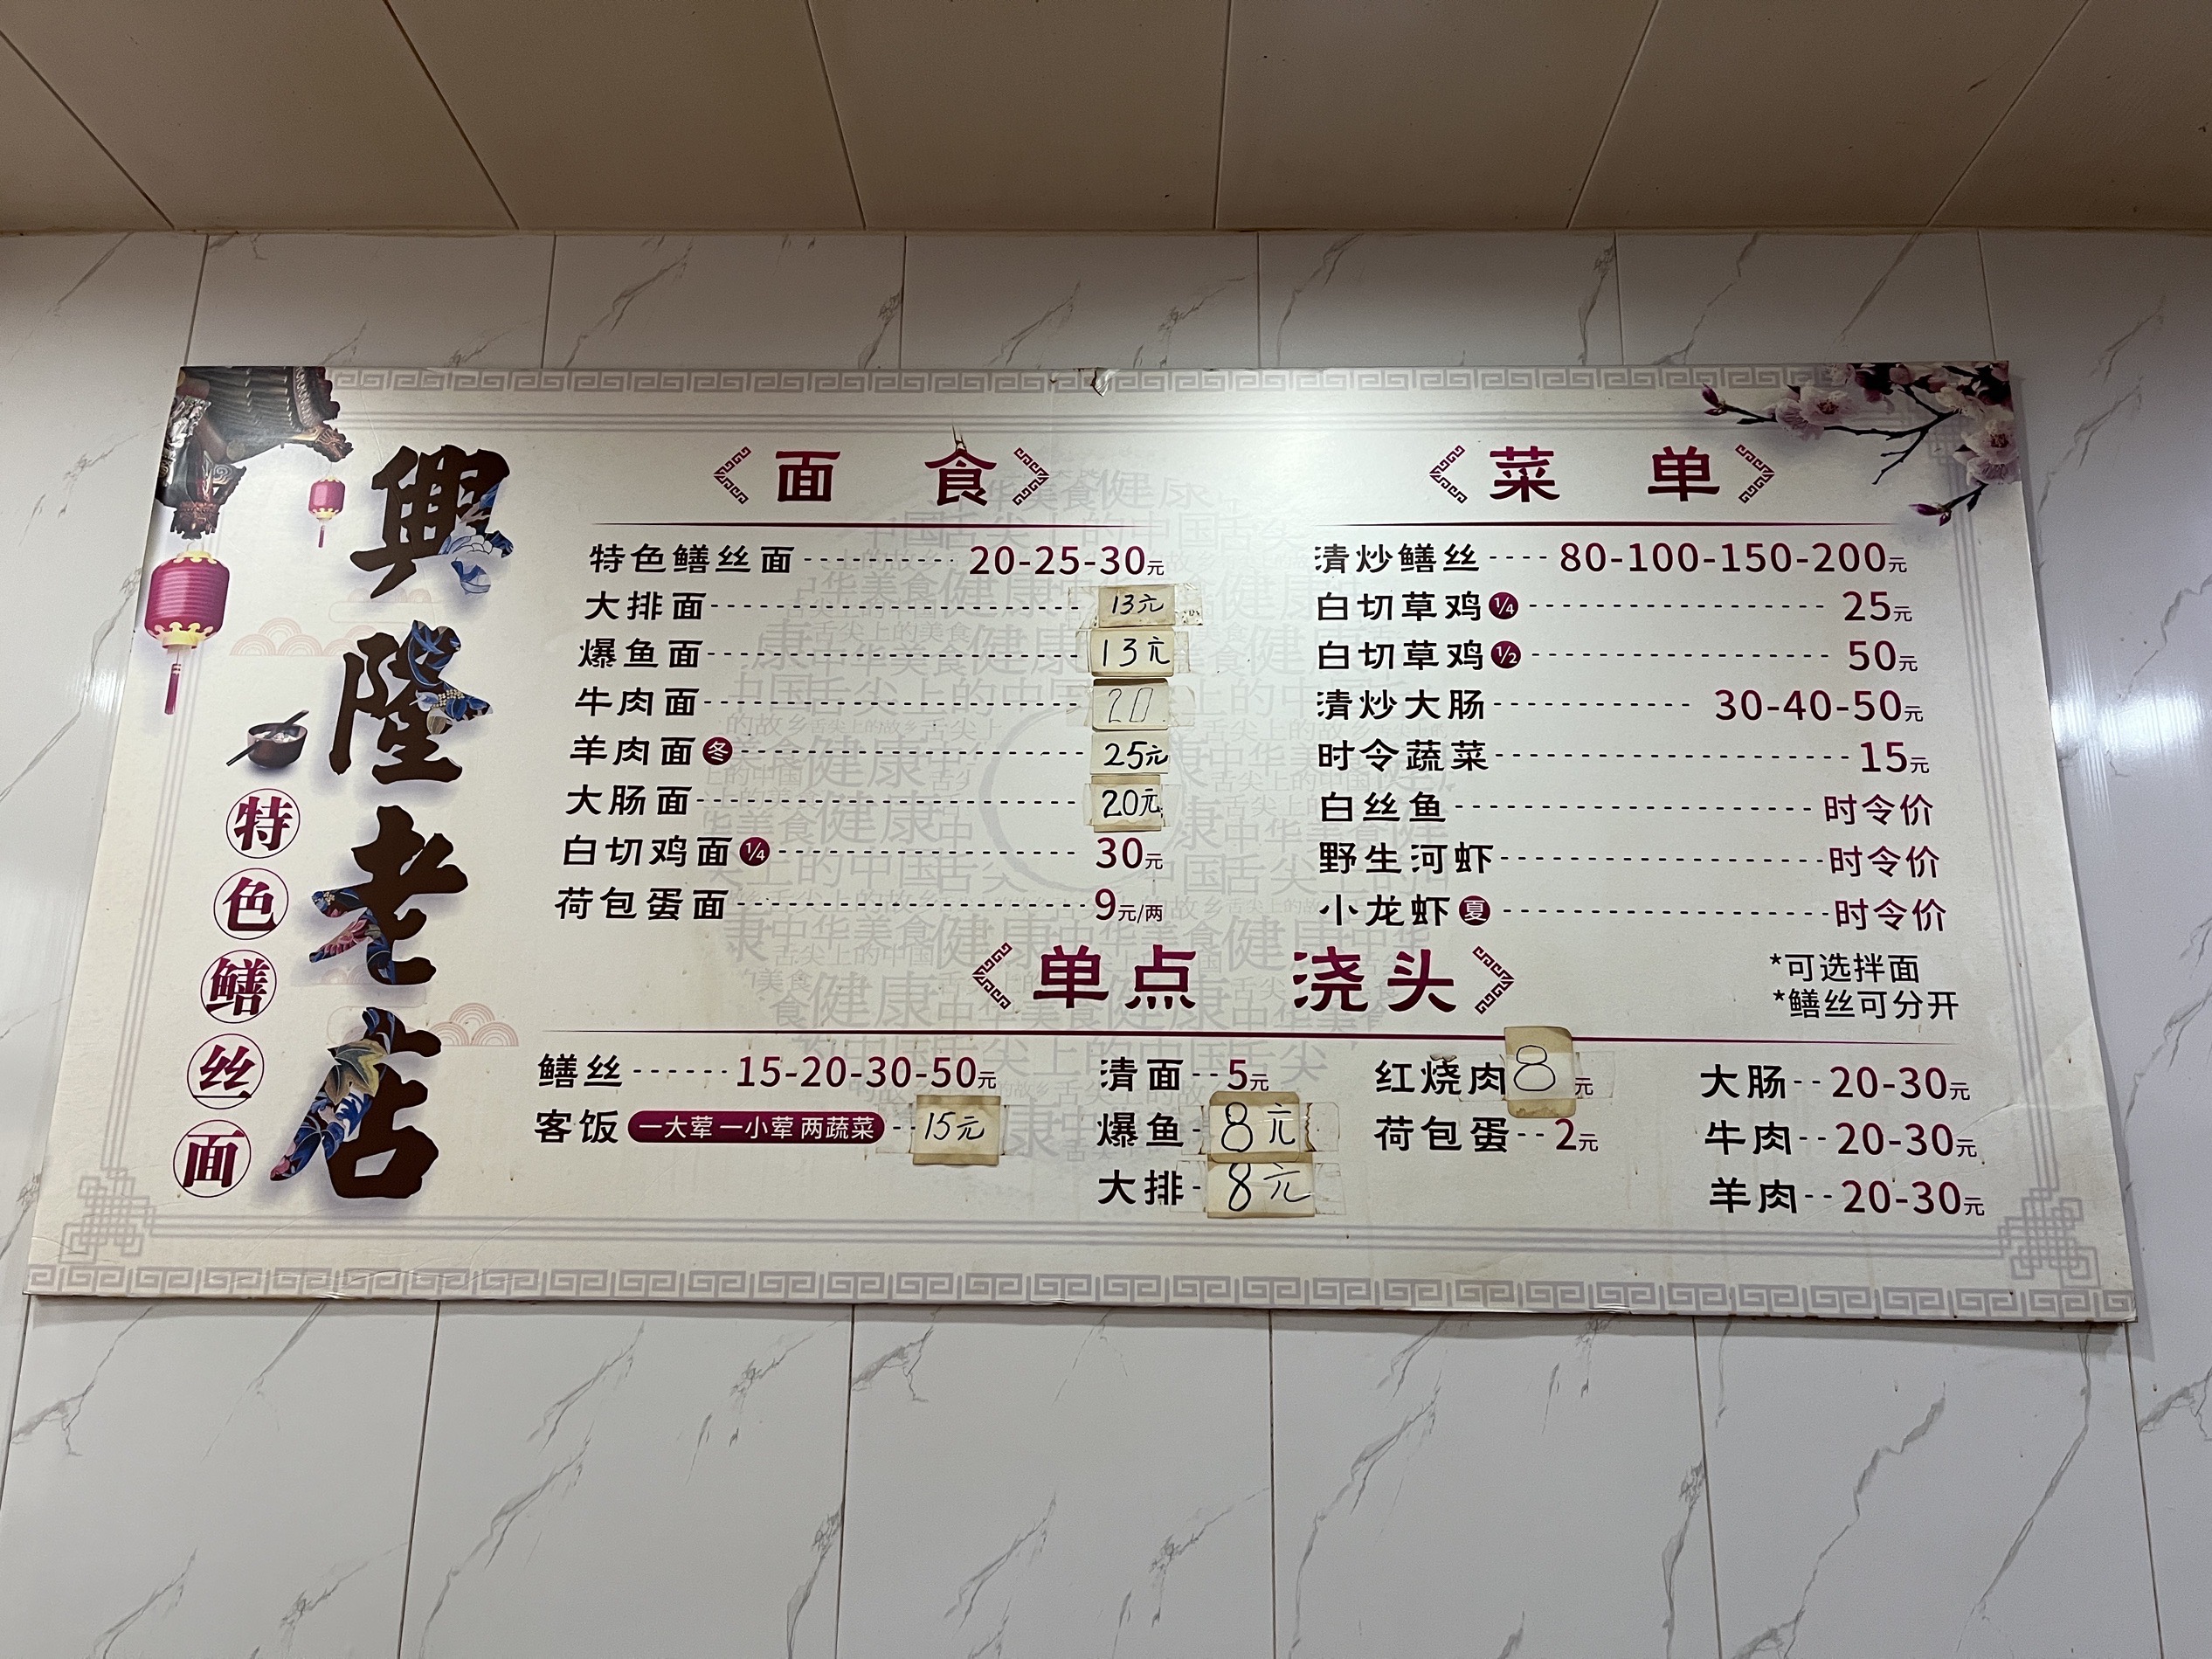 興隆老店
特色鳝丝面
面 食
特色鳝丝面 20-25-30元
大排面 13元
爆鱼面 13元
牛肉面 20
羊肉面 冬 25元
大肠面 20元
白切鸡面 1/4 30元
荷包蛋面 9元/两
菜 单
清炒鳝丝 80-100-150-200元
白切草鸡 1/4 25元
白切草鸡 1/2 50元
清炒大肠 30-40-50元
时令蔬菜 15元
白丝鱼 时令价
野生河虾 时令价
小龙虾 夏 时令价
*可选拌面
*鳝丝可分开
单点 浇头
鳝丝 15-20-30-50元
客饭 一大荤 一小荤 两蔬菜 15元
清面 5元
爆鱼 8元
大排 8元
红烧肉 8元
荷包蛋 2元
大肠 20-30元
牛肉 20-30元
羊肉 20-30元